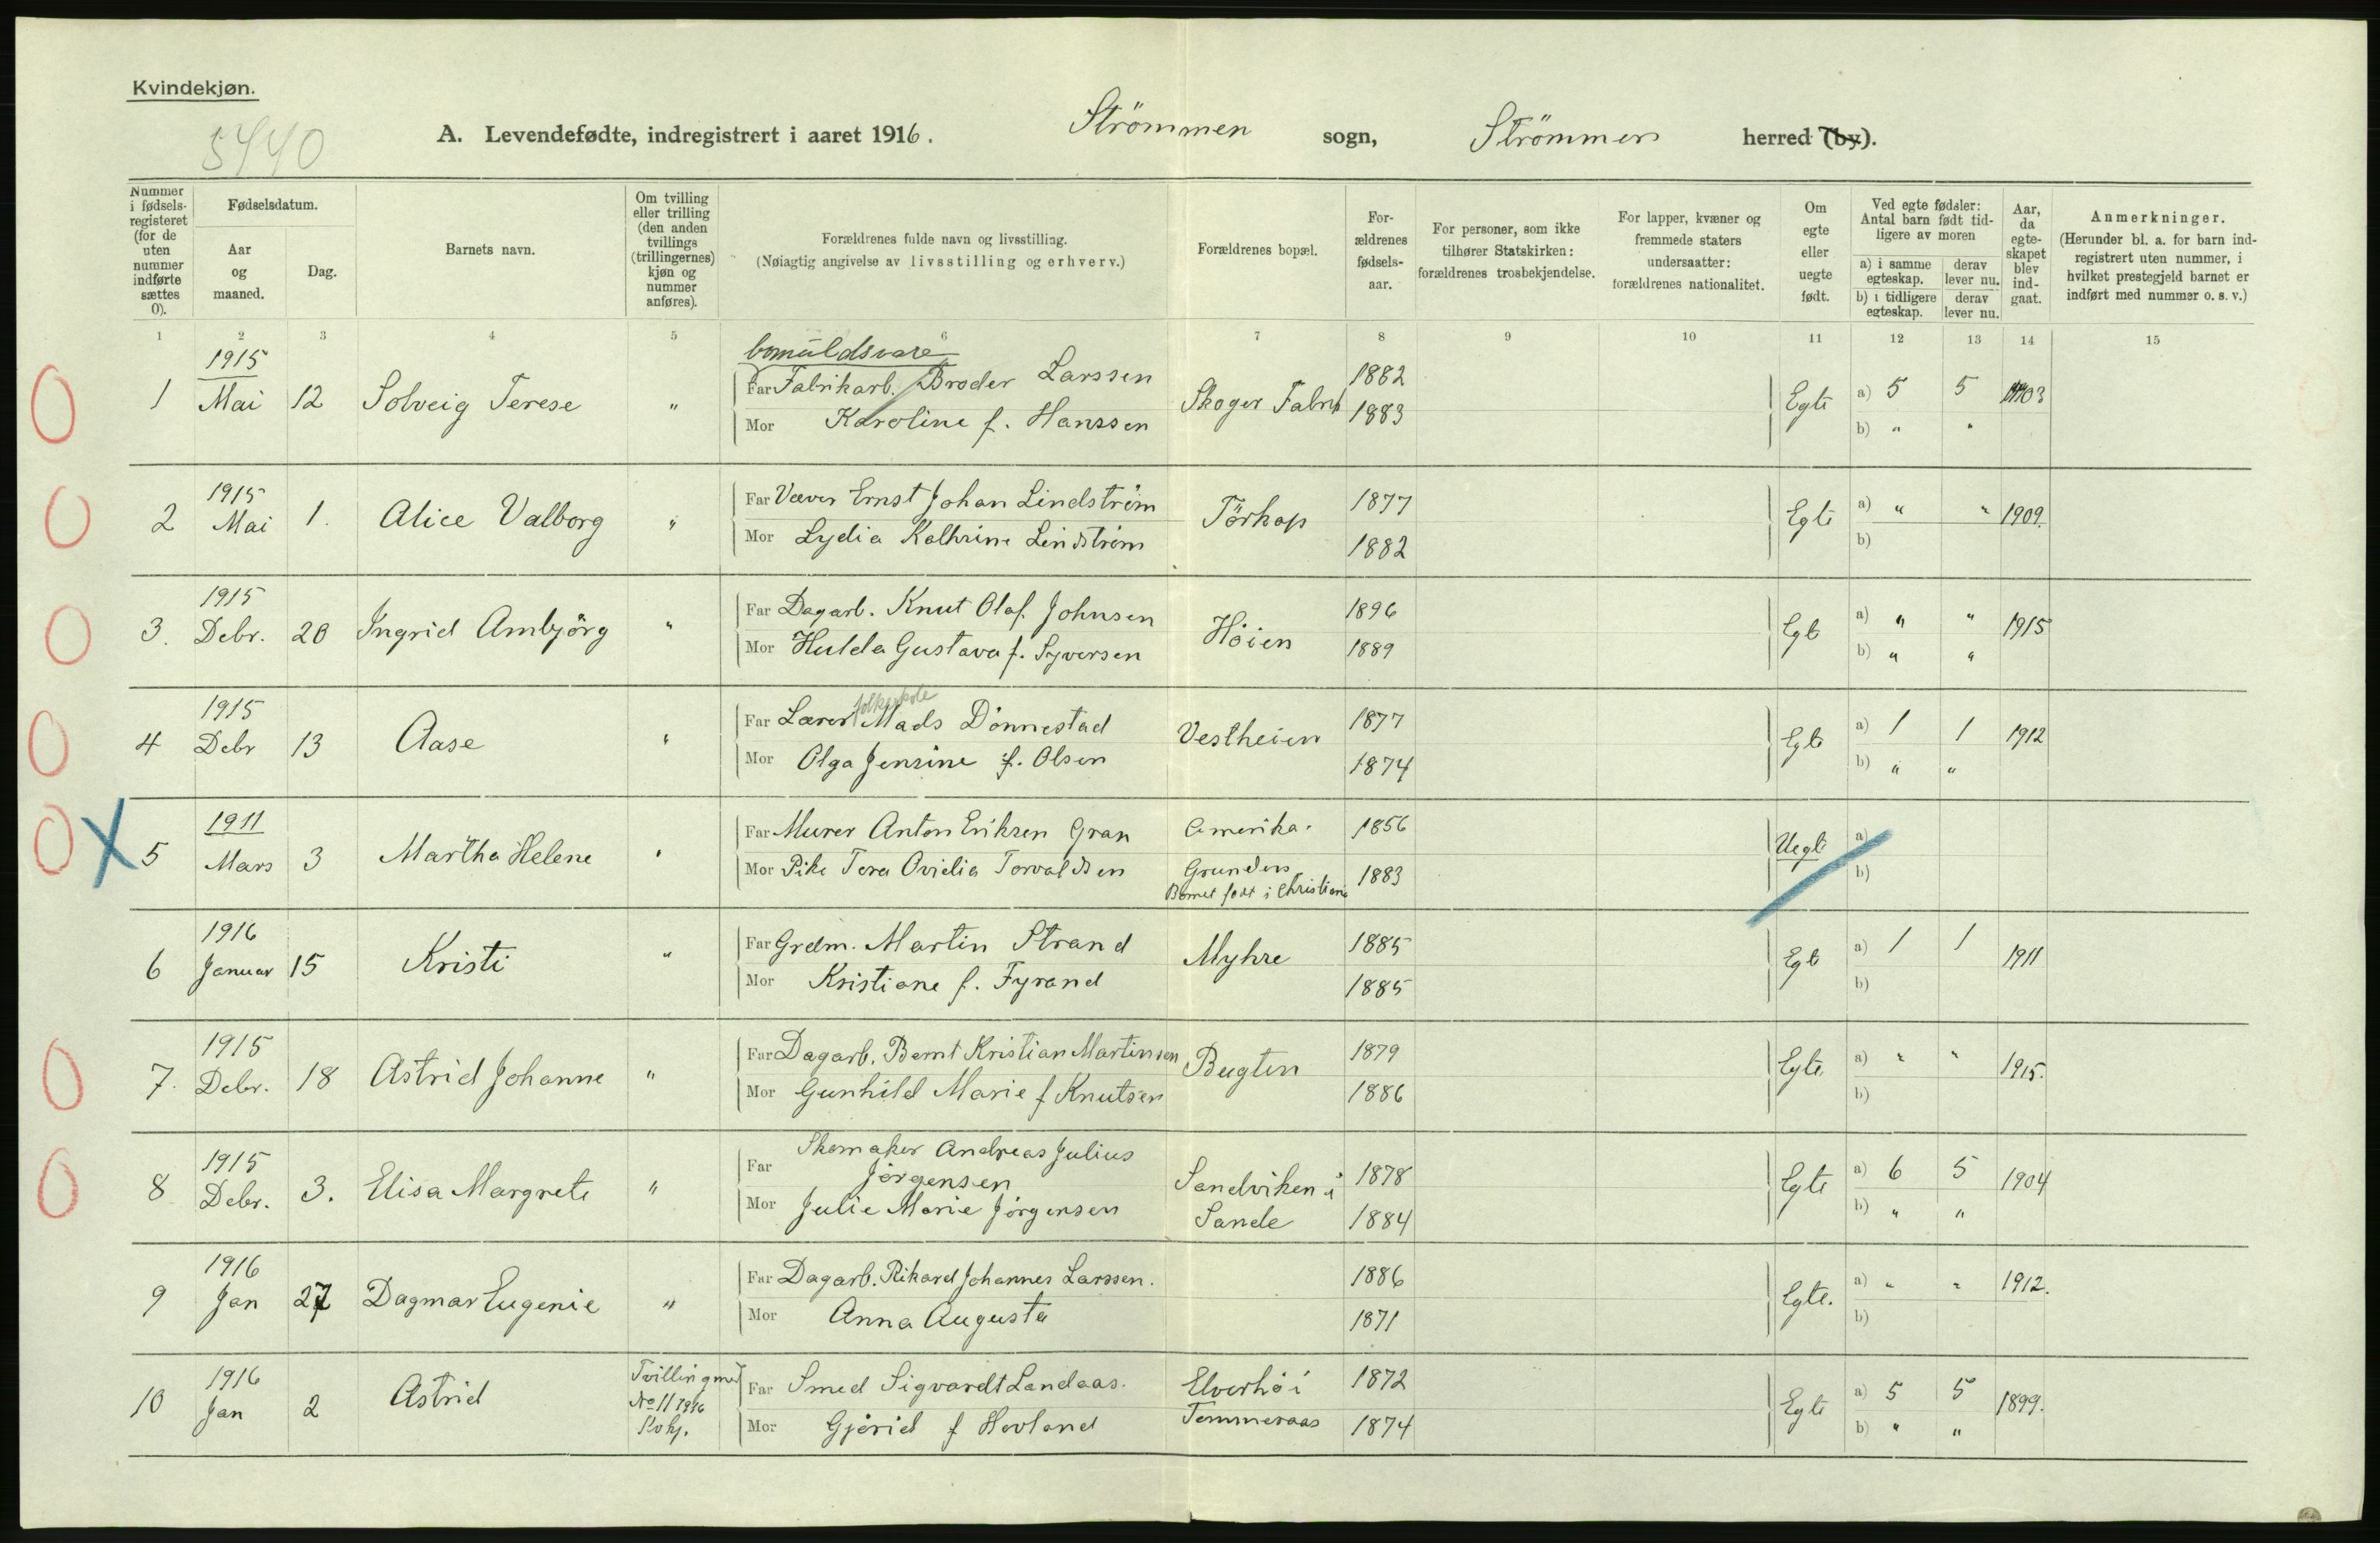 Kvindekjøn.
5440
A. Levendefødte, indregistrert i aaret 1916. Strömmen sogn, Strömmen herred (by).
Nummer i fødselsregisteret (for de uten nummer indførte sættes 0).
Fødselsdatum.
Aar og maaned.
Dag.
Barnets navn.
Om tvilling eller trilling (den anden tvillings (trillingernes) kjøn og nummer anføres).
Forældrenes fulde navn og livsstilling.
(Nøiagtig angivelse av livsstilling og erhverv.)
Forældrenes bopæl.
Forældrenes fødselsaar.
For personer, som ikke tilhører Statskirken: forældrenes trosbekjendelse.
For lapper, kvæner og fremmede staters undersaatter: forældrenes nationalitet.
Om egte eller uegte født.
Ved egte fødsler: Antal barn født tidligere av moren
a) i samme egteskap. derav lever nu.
b) i tidligere egteskap. derav lever nu.
Aar, da egteskapet blev indgaat.
Anmerkninger.
(Herunder bl. a. for barn indregistrert uten nummer, i hvilket prestegjeld barnet er indført med nummer o. s. v.)
1 2 3 4 5 6 7 8 9 10 11 12 13 14 15
1915 bomuldsvare
1 Mai 12 Solveig Terese " Far Fabrikarb. Broder Larssen Skoger Fabrik 1882 Egte a) 5 5 1903
Mor Karoline f. Hanssen 1883 b) " "
1915
2 Mai 1. Alice Valborg " Far Væver Ernst Johan Lindström Törkop 1877 Egte a) " " 1909.
Mor Lydia Kathrine Lindström 1882 b)
1915
3. Debr. 20 Ingrid Ambjörg " Far Dagarb. Knut Olaf Johnsen Höien 1896 Egte a) " " 1915
Mor Hulda Gustava f. Syversen 1889 b) " "
1915 folkeskole
4 Debr 13 Aase " Far Lærer Mads Dönnestad Vestheien 1877 Egte a) 1 1 1912
Mor Olga Jensine f. Olsen 1874 b) " "
1911
X 5 Mars 3 Martha Helene " Far Murer Anton Eriksen Gran Amerika. 1856 Uegte a)
Mor Pike Tora Ovidia Torvaldsen Grunden 1883 b)
Barnet född i Christiania
1916
6 Januar 15 Kristi " Far Grdm. Martin Strand Myhre 1885 Egte a) 1 1 1911
Mor Kristiane f. Fyrand 1885 b)
1915
7. Debr. 18 Astrid Johanne " Far Dagarb. Bernt Kristian Martinsen Bugten 1879 Egte a) " " 1915.
Mor Gunhild Marie f Knutsen 1886 b)
1915
8 Debr. 3. Elisa Margrete " Far Skomaker Andreas Julius Jörgensen Sandviken i Sande 1878 Egte a) 6 5 1904
Mor Julie Marie Jörgensen 1884 b) " "
1916
9 Jan 27 Dagmar Eugenie " Far Dagarb. Rikard Johannes Larssen. 1886 Egte. a) " " 1912.
Mor Anna Augusta 1871 b)
1916
10 Jan 2 Astrid Tvilling med No 11 1916 Far Smed Sigvardt Landaas. Elverhöi 1872 Egte a) 5 5 1899.
Mor Gjörid f Hovland Temmeraas 1874 b) " "